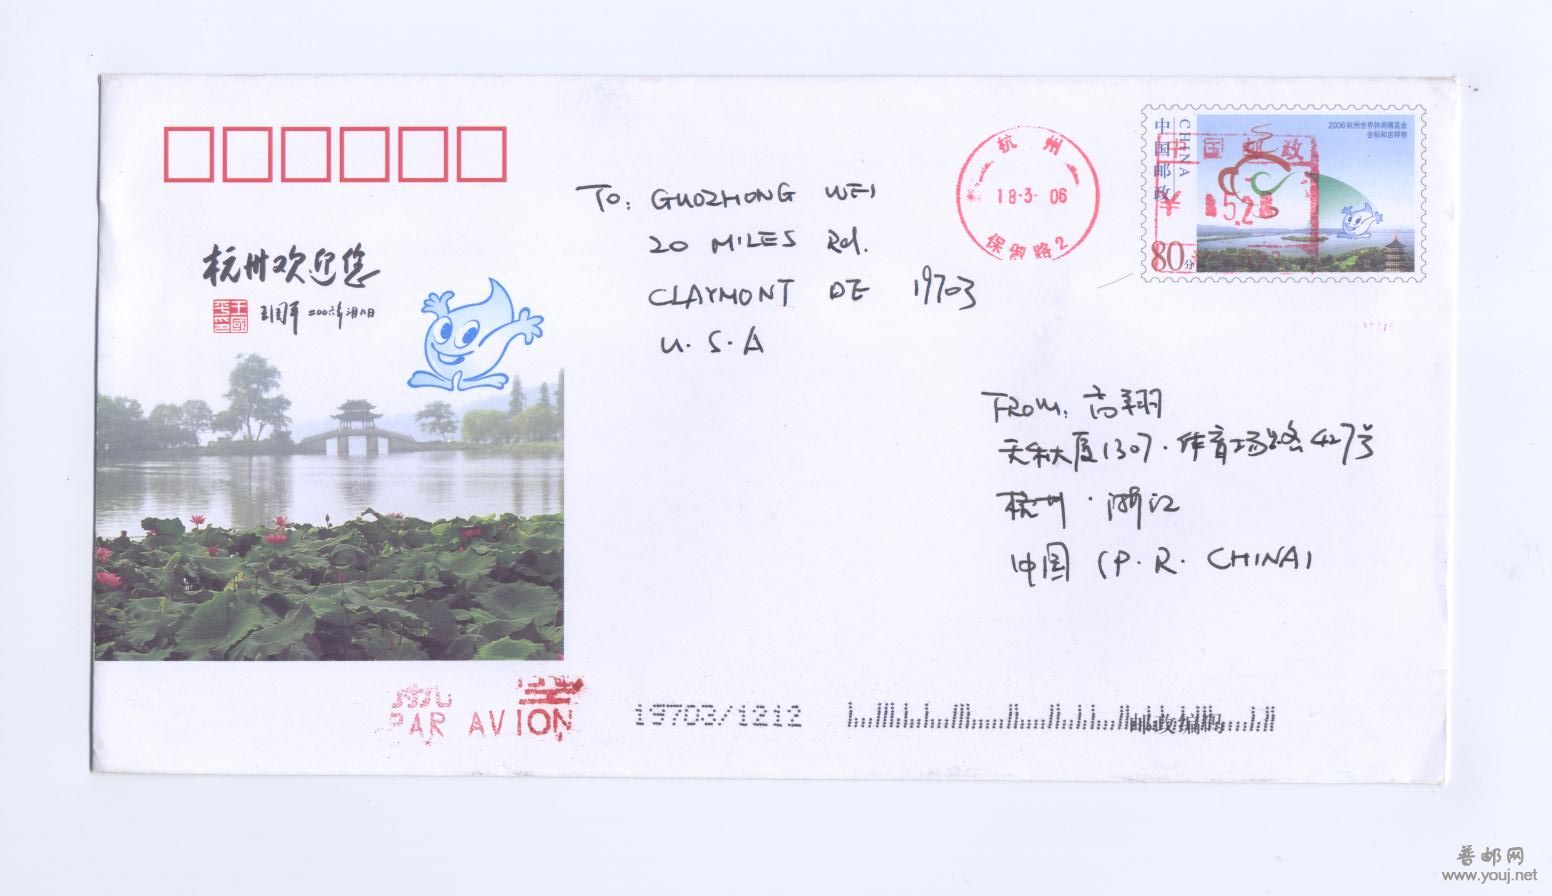 杭州欢迎您
王国平 二〇〇六年二月八日
To: GUOZHONG WEI
20 MILES Rd.
CLAYMONT DE 19703
U.S.A
杭州
18.3.06
保俶路2
中国邮政
CHINA
2006杭州世界休闲博览会
会标和吉祥物
中国邮政
¥
80分
FROM: 高翔
天水大厦1307·体育场路427号
杭州·浙江
中国 (P.R. CHINA)
PAR AVION
19703/1212
邮政编码
普邮网
www.youj.net